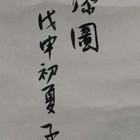 圖
戊申初夏